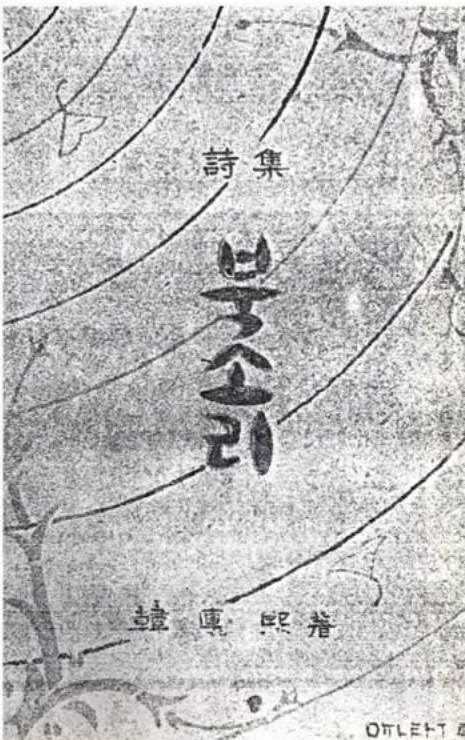 詩集
북소리
韓 熙 著